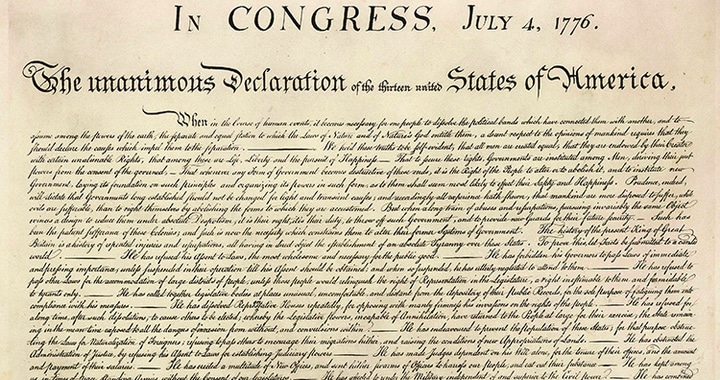 IN CONGRESS, JULY 4, 1776.
The unanimous Declaration of the thirteen united States of America,
When in the Course of human events, it becomes necessary for one people to dissolve the political bands which have connected them with another, and to
assume among the powers of the earth, the separate and equal station to which the Laws of Nature and of Nature's God entitle them, a decent respect to the opinions of mankind requires that they
should declare the causes which impel them to the separation. We hold these truths to be self-evident, that all men are created equal, that they are endowed by their Creator
with certain unalienable Rights, that among these are Life, Liberty and the pursuit of Happiness.— That to secure these rights, Governments are instituted among Men, deriving their just
powers from the consent of the governed,— That whenever any Form of Government becomes destructive of these ends, it is the Right of the People to alter or to abolish it, and to institute new
Government, laying its foundation on such principles and organizing its powers in such form, as to them shall seem most likely to effect their Safety and Happiness. Prudence, indeed,
will dictate that Governments long established should not be changed for light and transient causes; and accordingly all experience hath shewn, that mankind are more disposed to suffer, while
evils are sufferable, than to right themselves by abolishing the forms to which they are accustomed. But when a long train of abuses and usurpations, pursuing invariably the same Object
evinces a design to reduce them under absolute Despotism, it is their right, it is their duty, to throw off such Government, and to provide new Guards for their future security.— Such has
been the patient sufferance of these Colonies; and such is now the necessity which constrains them to alter their former Systems of Government. The history of the present King of Great
Britain is a history of repeated injuries and usurpations, all having in direct object the establishment of an absolute Tyranny over these States. To prove this, let Facts be submitted to a candid
world. He has refused his Assent to Laws, the most wholesome and necessary for the public good. He has forbidden his Governors to pass Laws of immediate
and pressing importance, unless suspended in their operation till his Assent should be obtained; and when so suspended, he has utterly neglected to attend to them. He has refused to
pass other Laws for the accommodation of large districts of people, unless those people would relinquish the right of Representation in the Legislature, a right inestimable to them and formidable
to tyrants only. He has called together legislative bodies at places unusual, uncomfortable, and distant from the depository of their Public Records, for the sole purpose of fatiguing them into
compliance with his measures. He has dissolved Representative Houses repeatedly, for opposing with manly firmness his invasions on the rights of the people. He has refused for
a long time, after such dissolutions, to cause others to be elected; whereby the Legislative powers, incapable of Annihilation, have returned to the People at large for their exercise; the State remain-
ing in the mean time exposed to all the dangers of invasion from without, and convulsions within. He has endeavoured to prevent the population of these States; for that purpose obstruc-
ting the Laws for Naturalization of Foreigners; refusing to pass others to encourage their migrations hither, and raising the conditions of new Appropriations of Lands. He has obstructed the
Administration of Justice, by refusing his Assent to Laws for establishing Judiciary powers. He has made Judges dependent on his Will alone, for the tenure of their offices, and the amount
and payment of their salaries. He has erected a multitude of New Offices, and sent hither swarms of Officers to harass our people, and eat out their substance. He has kept among
us, in times of peace, Standing Armies without the Consent of our legislatures. He has affected to render the Military independent of and superior to the Civil power. He has combined